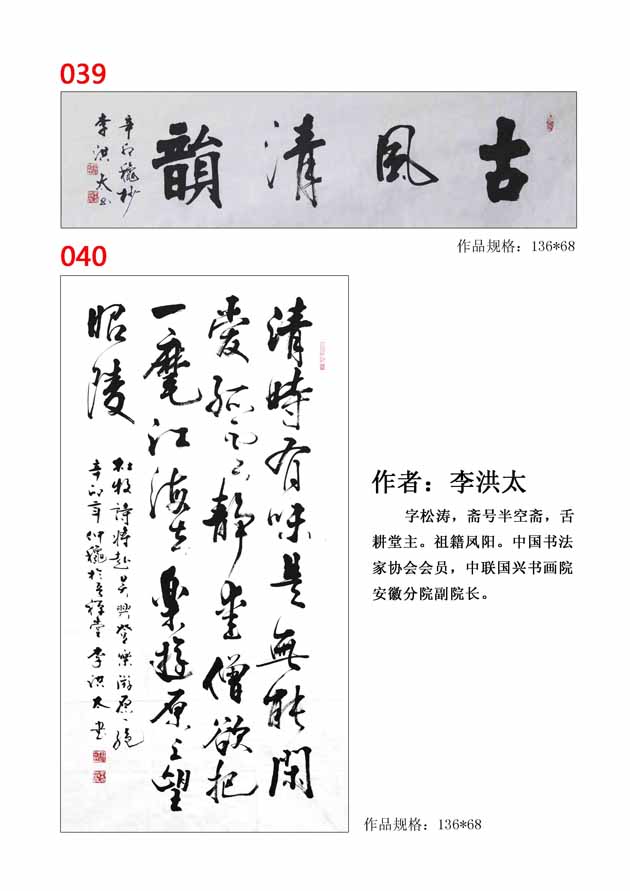 039
古風清韻
辛卯穐杪
李洪太書
作品规格：136*68
040
清時有味是無能閑
愛孤雲静愛僧欲把
一麾江海去樂遊原上望
昭陵
杜牧詩將赴吴興登樂游原一絶
辛卯年仲穐於堂李洪太書
作者：李洪太
字松涛，斋号半空斋，舌
耕堂主。祖籍凤阳。中国书法
家协会会员，中联国兴书画院
安徽分院副院长。
作品规格：136*68